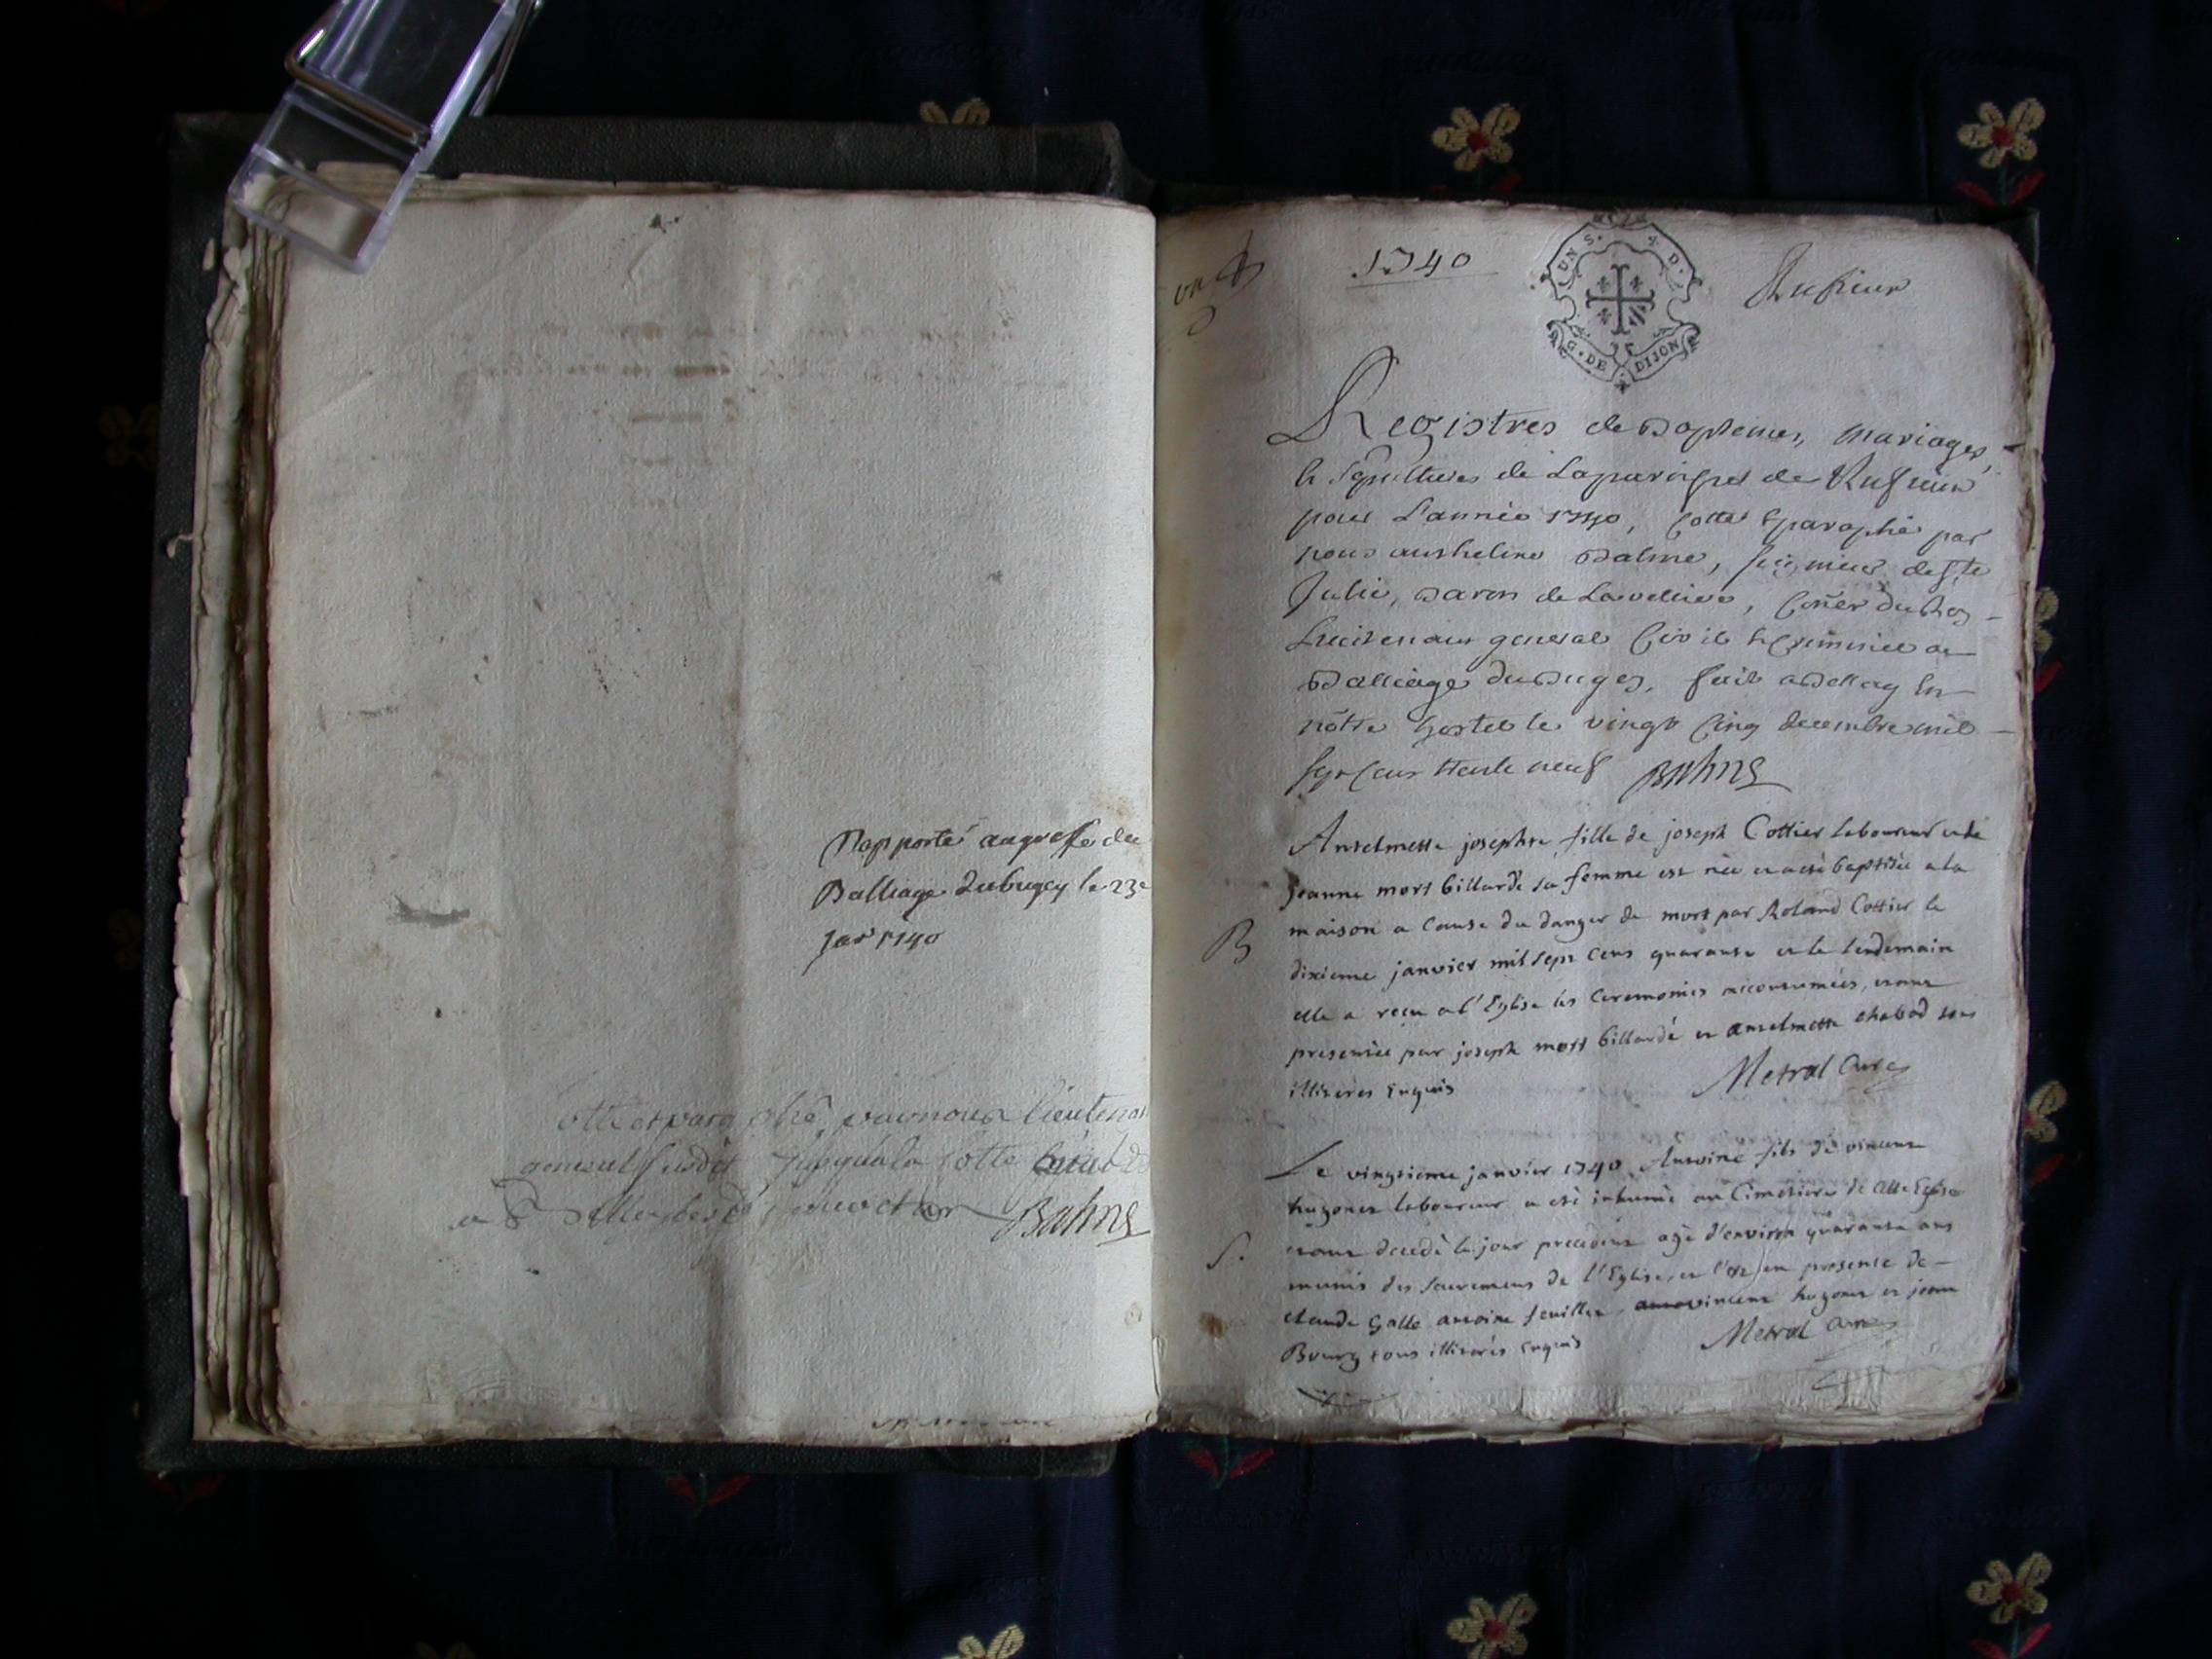 Rapporté au greffe du
Balliage du bugey le 23e
Janr 1740
cotté et paraphé, par nous lieutenant
general susdit jusqu'a la cotte huict
Balme
un
1740
UN S. 4. D.
G. DE DIJON
Rufieux
Registres de Baptemes, mariages,
& sepultures de La paroisse de Rufieux
pour L'année 1740, Cotté & paraphé par
nous anthelme Balme, seigneur de Ste
Julie, Baron de La velliere, Coner du Roy
Lieutenant general Civil & Criminel au
Balliage du Bugey, fait a Belley En
nôtre hostel le vingt Cinq decembre mil
sept Cens trente neuf Balme
Anselmette josephte fille de joseph Cottier laboureur et de
jeanne mort billarde sa femme est née et a esté baptisée a la
B
maison a Cause du danger de mort par Roland Cottier le
dixieme janvier mil sept cens quarante et le lendemain
elle a reçu a l'Eglise les Ceremonies accoutumées, etant
presentée par joseph mort billarde et anselmette chabod tous
illiterés Enquis Metral Curé
Le vingtieme janvier 1740 Antoine fils de vincent
hugonet laboureur a esté inhumé au Cimetiere de cette Eglise
S.
etant decedé le jour precedent agé d'environ quarante ans
munis des sacremens de l'Eglise, et l'ex en presence de
claude Galle antoine feuillet, vincent hugonet et jean
Bourg tous illiterés enquis Metral Curé